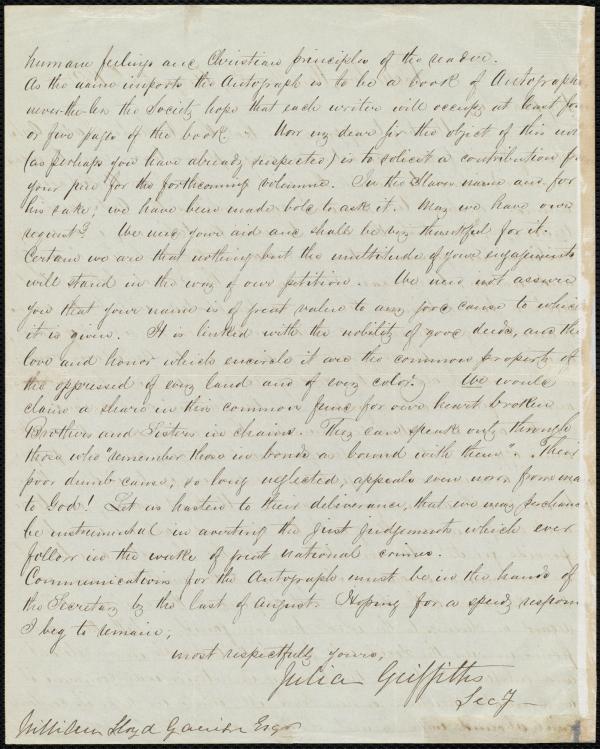 humane feelings and Christian principles of the reader.
As the name imports the Autograph is to be a book of Autographs
never-the-less the Society hope that each writer will occupy at least four
or five pages of the book. Now my dear Sir the object of this
(as perhaps you have already suspected) is to solicit a contribution from
your pen for the forthcoming volumne. In the Slaves name and for
his sake, we have been made bold to ask it. May we have our
request? We need your aid and shall be very thankful for it.
Certain we are that nothing but the multitude of your engagements
will stand in the way of our petition. We need not assure
you that your name is of great value to any good cause to which
it is given. It is linked with the nobility of good deeds, and the
love and honor which encircle it are the common property of
the oppressed of every land and of every color. We would
claim a share in this common fund for our heart broken
Brothers and Sisters in chains. They can speak only through
those who "remember those in bonds as bound with them". Their
poor dumb cause, so long neglected, appeals even now from man
to God! Let us hasten to their deliverance, that we may perchance
be instrumental in averting the just judgements which ever
follow in the wake of great national crimes.
Communications for the Autograph must be in the hands of
the Secretary by the last of August. Hoping for a speedy response
I beg to remain,
most respectfully yours,
Julia Griffiths
Secy
William Lloyd Garrison Esqr